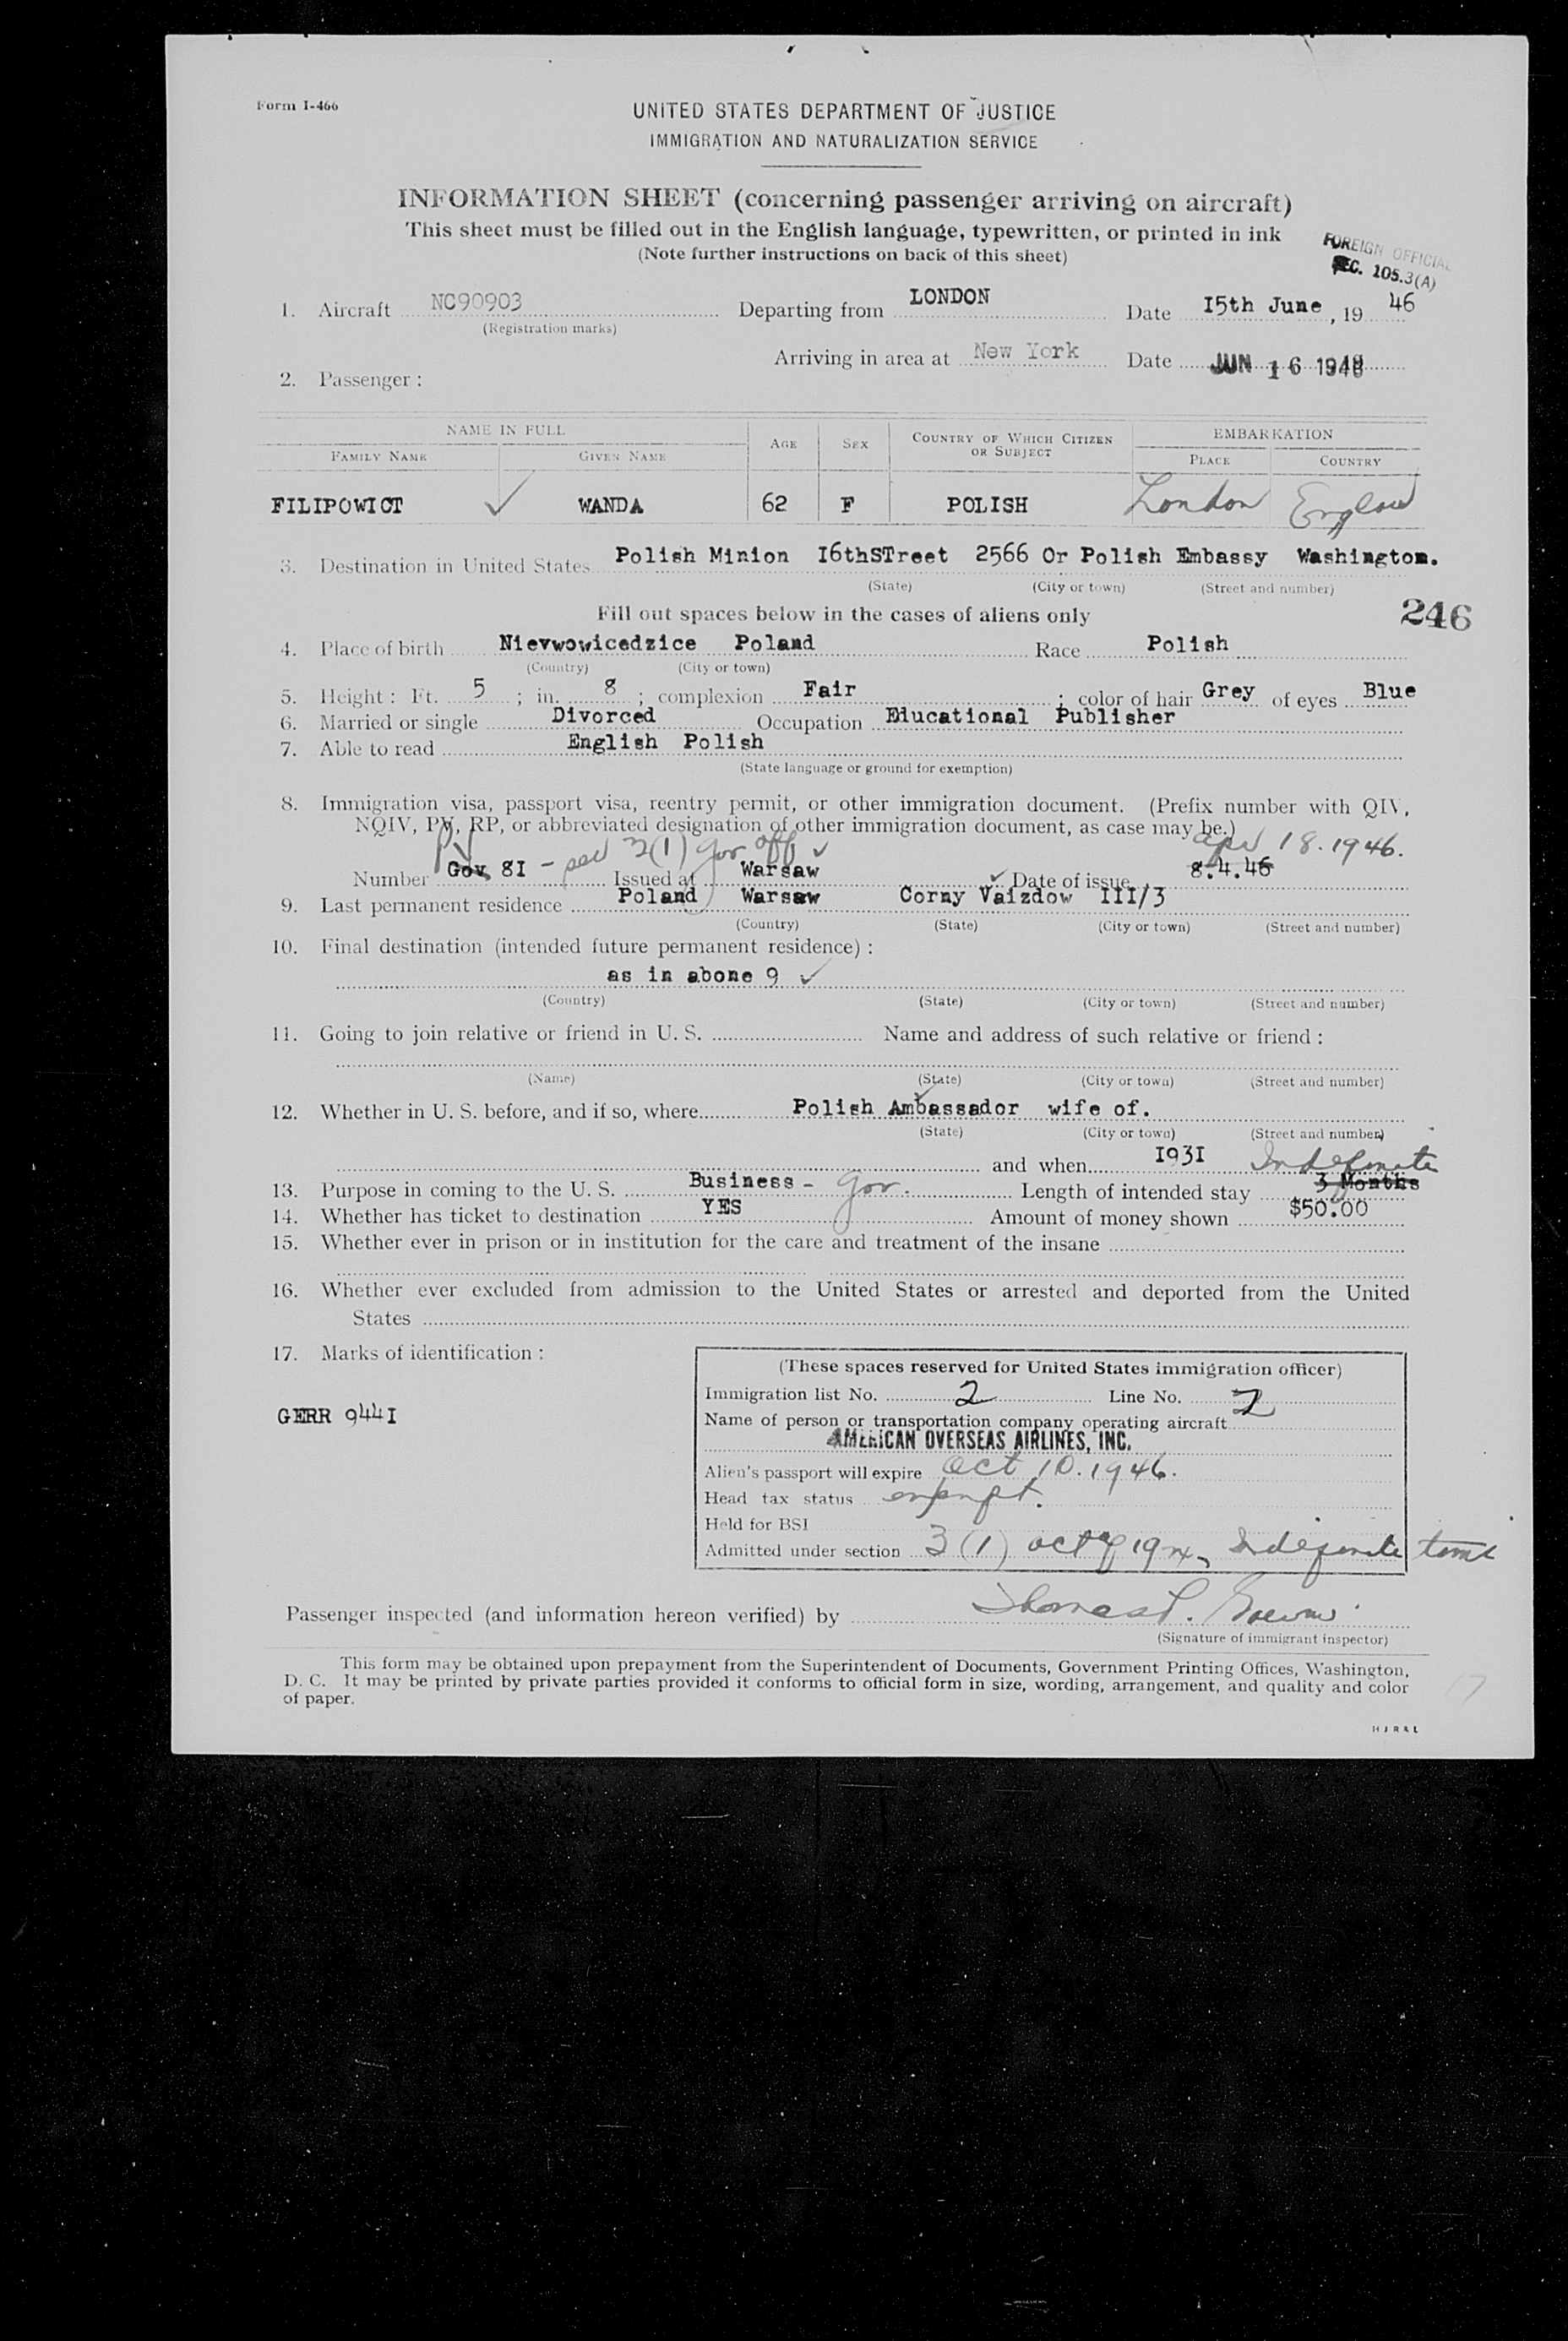 Form I-466
UNITED STATES DEPARTMENT OF JUSTICE
IMMIGRATION AND NATURALIZATION SERVICE
INFORMATION SHEET (concerning passenger arriving on aircraft)
This sheet must be filled out in the English language, typewritten, or printed in ink
(Note further instructions on back of this sheet)
FOREIGN OFFICIAL
SEC. 105.3(A)
1. Aircraft NC90903 Departing from LONDON Date I5th June, 19 46
(Registration marks)
Arriving in area at New York Date JUN 16 1946
2. Passenger:
NAME IN FULL AGE SEX COUNTRY OF WHICH CITIZEN OR SUBJECT EMBARKATION
FAMILY NAME GIVEN NAME PLACE COUNTRY
FILIPOWICT WANDA 62 F POLISH London England
3. Destination in United States Polish Minion I6thSTreet 2566 Or Polish Embassy Washington.
(State) (City or town) (Street and number)
Fill out spaces below in the cases of aliens only
246
4. Place of birth Nievwowicedzice Poland Race Polish
(Country) (City or town)
5. Height: Ft. 5; in. 8; complexion Fair; color of hair Grey of eyes Blue
6. Married or single Divorced Occupation Educational Publisher
7. Able to read English Polish
(State language or ground for exemption)
8. Immigration visa, passport visa, reentry permit, or other immigration document. (Prefix number with QIV,
NQIV, PV, RP, or abbreviated designation of other immigration document, as case may be.)
PV 3(1) gov off Apr 18. 1946.
Number Gov 8I - Issued at Warsaw Date of issue 8.4.46
9. Last permanent residence Poland Warsaw Corny Vaizdow III/3
(Country) (State) (City or town) (Street and number)
10. Final destination (intended future permanent residence):
as in abone 9
(Country) (State) (City or town) (Street and number)
11. Going to join relative or friend in U. S. Name and address of such relative or friend:
(Name) (State) (City or town) (Street and number)
12. Whether in U. S. before, and if so, where Polish Ambassador wife of.
(State) (City or town) (Street and number)
and when I93I Indefinite
13. Purpose in coming to the U. S. Business - gov. Length of intended stay 3 Months
14. Whether has ticket to destination YES Amount of money shown $50.00
15. Whether ever in prison or in institution for the care and treatment of the insane
16. Whether ever excluded from admission to the United States or arrested and deported from the United
States
17. Marks of identification:
GERR 944I
(These spaces reserved for United States immigration officer)
Immigration list No. 2 Line No. 2
Name of person or transportation company operating aircraft
AMERICAN OVERSEAS AIRLINES, INC.
Alien's passport will expire Oct 10. 1946.
Head tax status exempt.
Held for BSI
Admitted under section 3(1) act of 1924, Indefinite time
Passenger inspected (and information hereon verified) by Thomas
(Signature of immigrant inspector)
This form may be obtained upon prepayment from the Superintendent of Documents, Government Printing Offices, Washington,
D. C. It may be printed by private parties provided it conforms to official form in size, wording, arrangement, and quality and color
of paper.